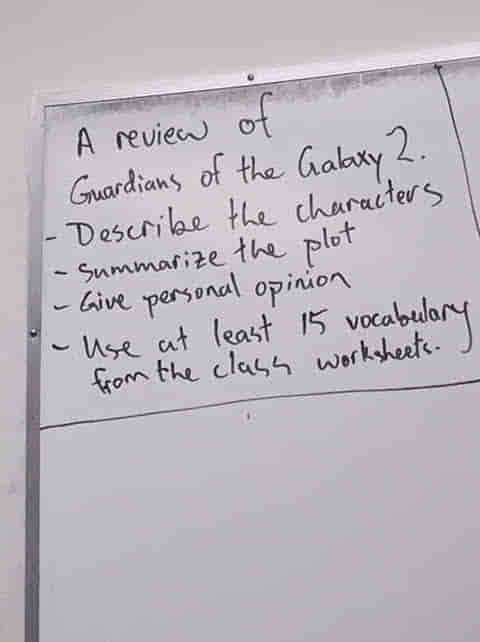 A review of
Guardians of the Galaxy 2.
- Describe the characters
- Summarize the plot
- Give personal opinion
- Use at least 15 vocabulary
from the class worksheets.